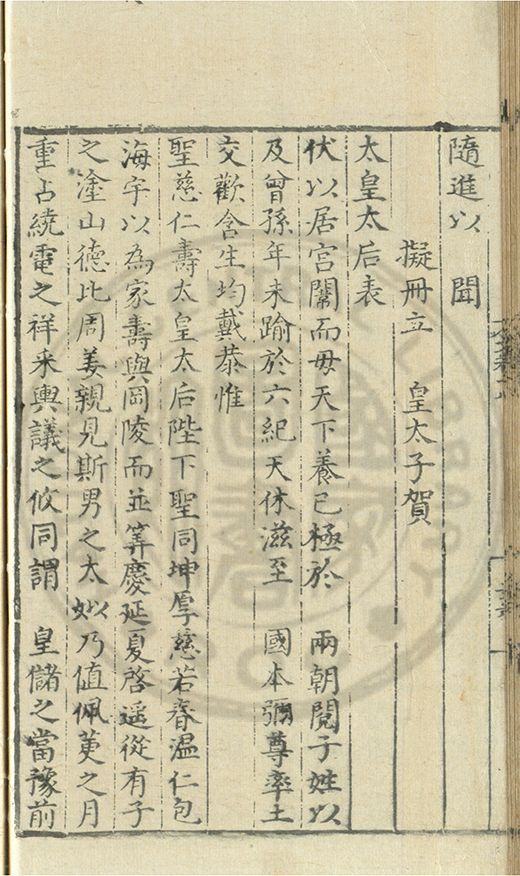 隨進以　聞
擬冊立　皇太子賀
太皇太后表
伏以居宫闈而毋天下養已極於　兩朝閲子姓以
及曾孫年未踰於六紀天休滋至　國本彌尊率土
交歡含生均戴恭惟
聖慈仁壽太皇太后陛下聖同坤厚慈若春温仁包
海宇以為家壽與岡陵而並筭慶延夏啓遥從有子
之塗山徳比周姜親見斯男之太姒乃值佩萸之月
重占繞電之祥采輿議之攸同謂　皇儲之當豫前